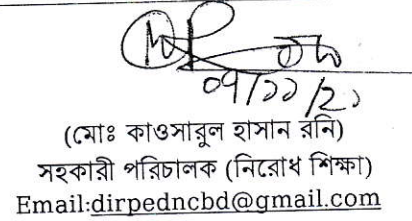 ০৭/১১/২১
(মোঃ কাওসারুল হাসান রনি)
সহকারী পরিচালক (নিরোধ শিক্ষা)
Email:dirpedncbd@gmail.com